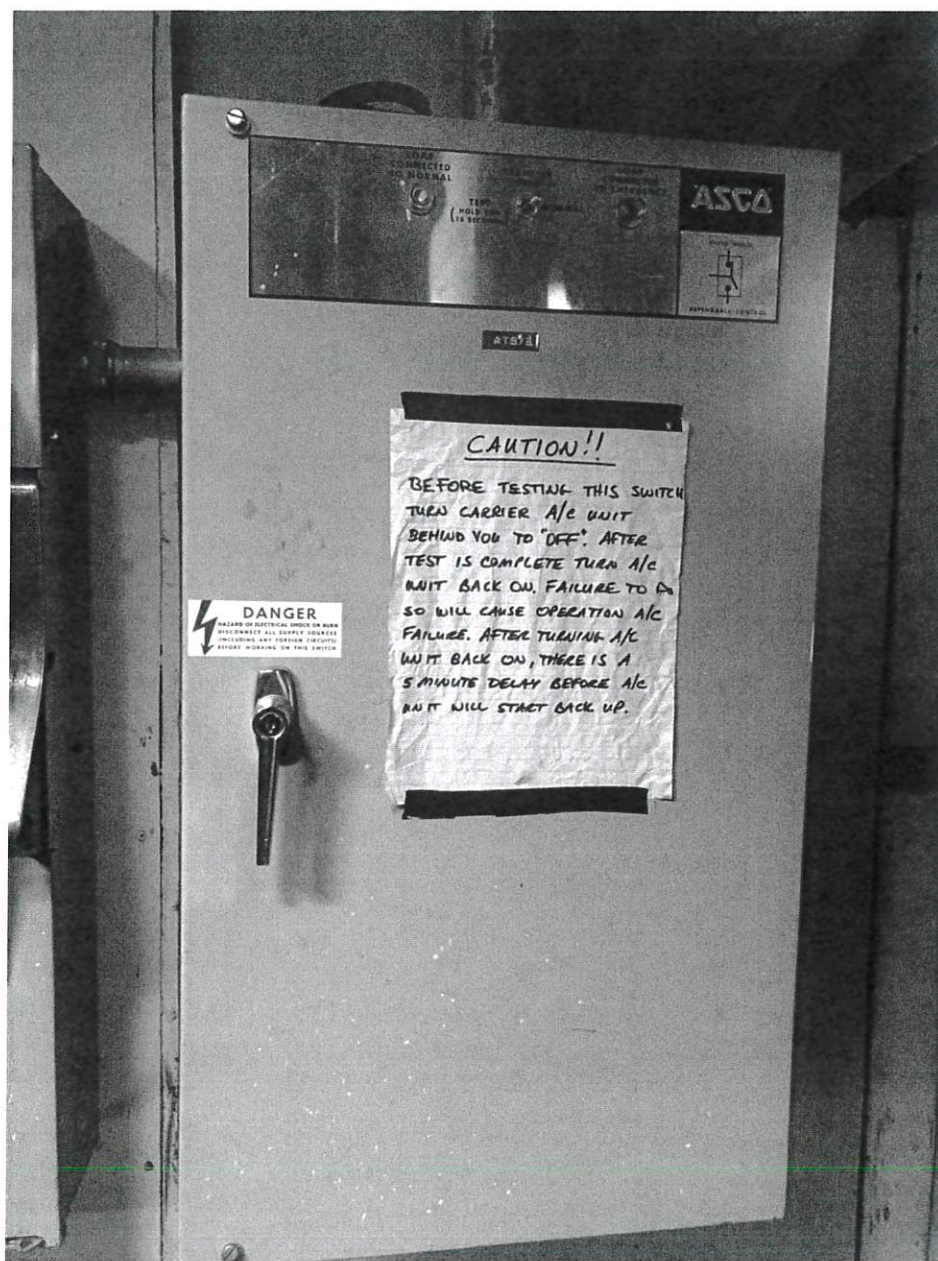 LOAD
CONNECTED
TO NORMAL
TEST
(HOLD FOR
15 SECONDS)
EMERGENCY
ASCO
DEPENDABLE CONTROL
CAUTION!!
BEFORE TESTING THIS SWITCH
TURN CARRIER A/C UNIT
BEHIND YOU TO "OFF". AFTER
TEST IS COMPLETE TURN A/C
UNIT BACK ON. FAILURE TO DO
SO WILL CAUSE OPERATION A/C
FAILURE. AFTER TURNING A/C
UNIT BACK ON, THERE IS A
5 MINUTE DELAY BEFORE A/C
UNIT WILL START BACK UP.
DANGER
HAZARD OF ELECTRICAL SHOCK OR BURN
DISCONNECT ALL SUPPLY SOURCES
(INCLUDING ANY FOREIGN CIRCUITS)
BEFORE WORKING ON THIS SWITCH